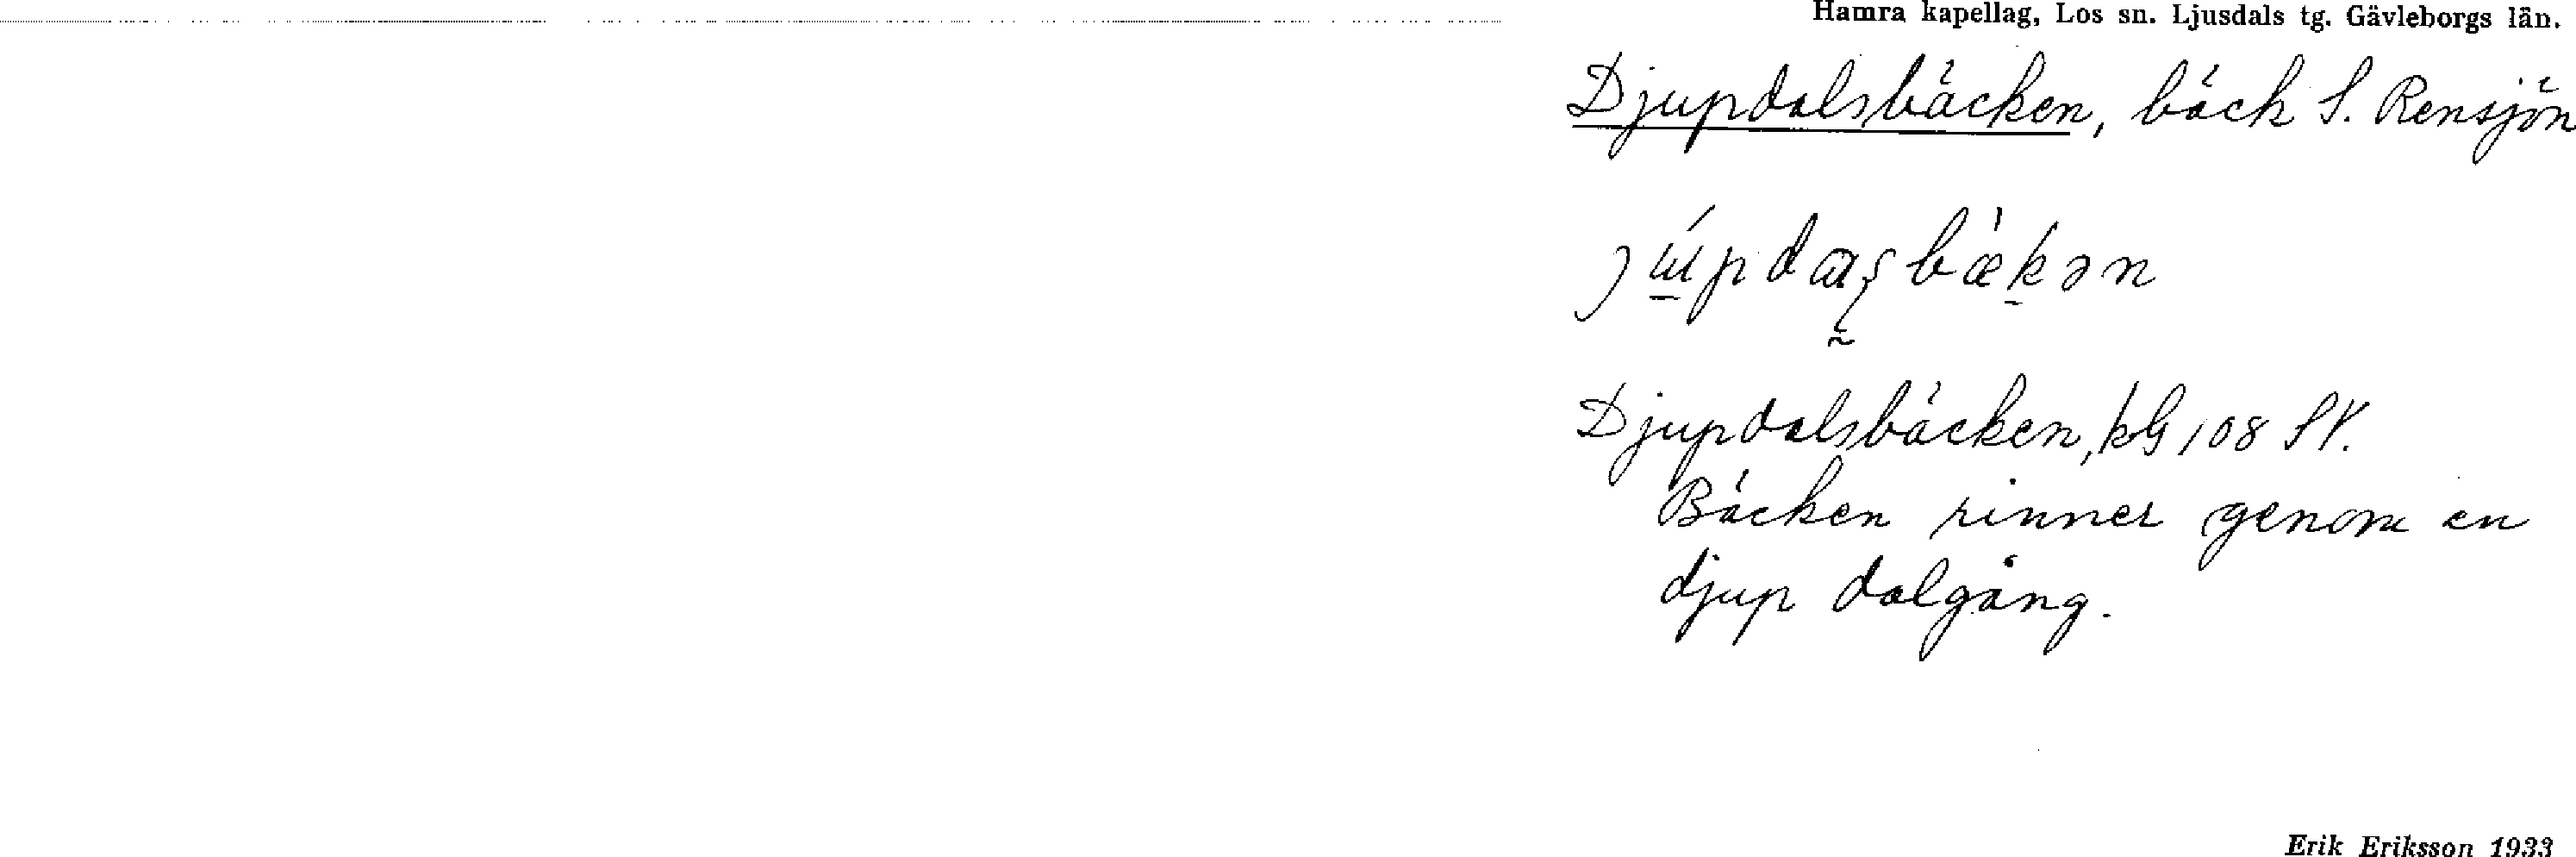 Hamra kapellag, Los sn. Ljusdals tg. Gävleborgs län.
Djupdalsbäcken, bäck S. Rensjön
Djupdalsbäcken, kG 108 SV.
Bäcken rinner genom en
djup dalgång.
Erik Eriksson 1933